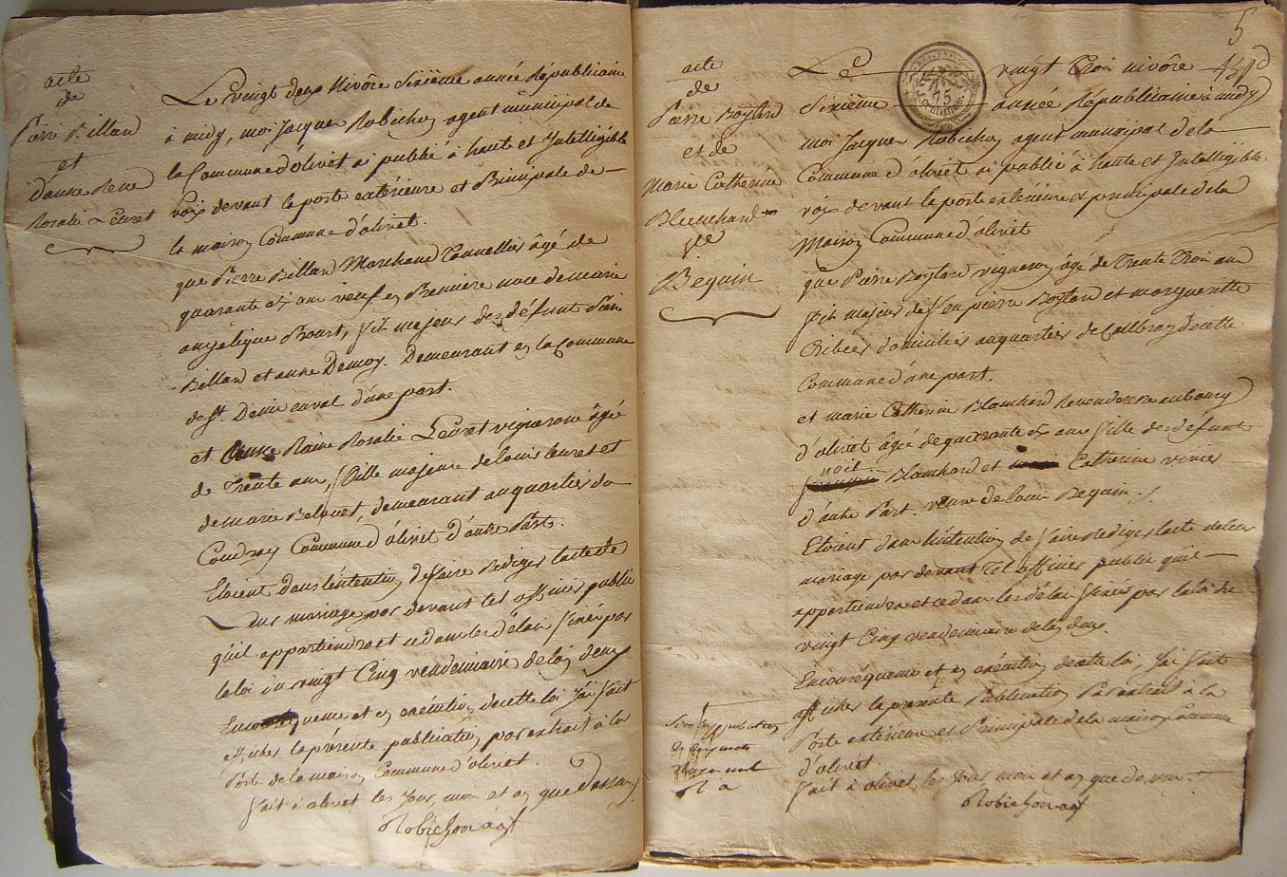 acte
de
Pierre Billard
et
danne Reine
Rosalie Leuret
Le vingt deux Nivôre Sixième année Républicaine
à midy, moi Jacque Robichon agent municipal de
la Commune d'olivet ai publié à haute et Intelligible
voix devant la porte extérieure et Principale de
la maison Commune d'olivet.
que Pierre Billard Marchand Tonnellier âgé de
quarante ans veuf en Premiere noce de marie
angelique Bouret, fils majeur des défunt
Billard et anne Demoy. Demeurant en la Commune
de St. Denis enval d'une part.
et anne Raine Rosalie Leuret vigneronne âgé
de Trente ans, fille majeure de louis leuret et
de marie Belouet, demeurant au quartier du
Coudray Commune d'olivet d'autre Part.
Etoient dans l'intention de faire Rediger l'acte de
leur mariage par devant tel officier public
qu'il appartiendra et ce dans les délais fixés par
la loi du vingt Cinq vendemiaire de l'an deux
Enconsequence et en exécution decette loi J'ai fait
afficher la présente publication par extrait à la
Porte de la maison Commune d'olivet.
fait à olivet les Jour, mois et an que dessus
Robichon agt
5
acte
de
Pierre Boylard
et de
Marie Catherine
Bleuchard
Ve
Beguin
Le vingt Trois nivôre
Sixième année Républicaine à midy
moi Jacque Robichon agent municipal de la
Commune d'olivet ai publié à haute et Intelligible
voix devant la porte extérieure et principale de la
Maison Commune d'olivet
que Pierre Boylard vigneron âgé de Trente Trois ans
fils majeur de feu pierre Boylard et marguerite
Ribier domicilié au quartier de Callbray decette
Commune d'une part.
et marie Catherine Blanchard Revendeuse au bourg
d'olivet âgé de quarante ans fille de défunt
noil
Blanchard et Catherine vinier
d'autre Part. veuve de louis Beguin.
Etoient dans l'intention de faire rediger l'acte de leur
mariage par devant tel officier public qu'il
appartiendra et ce dans les délais fixés par la loi du
vingt Cinq vendemiaire de l'an deux.
Enconséquence et en exécution decette loi, J'ai fait
afficher la presente Publication Par extrait à la
Porte extérieure et Principale de la maison Commune
d'olivet.
fait à olivet les Jour mois et an que dessus
Robichon agt